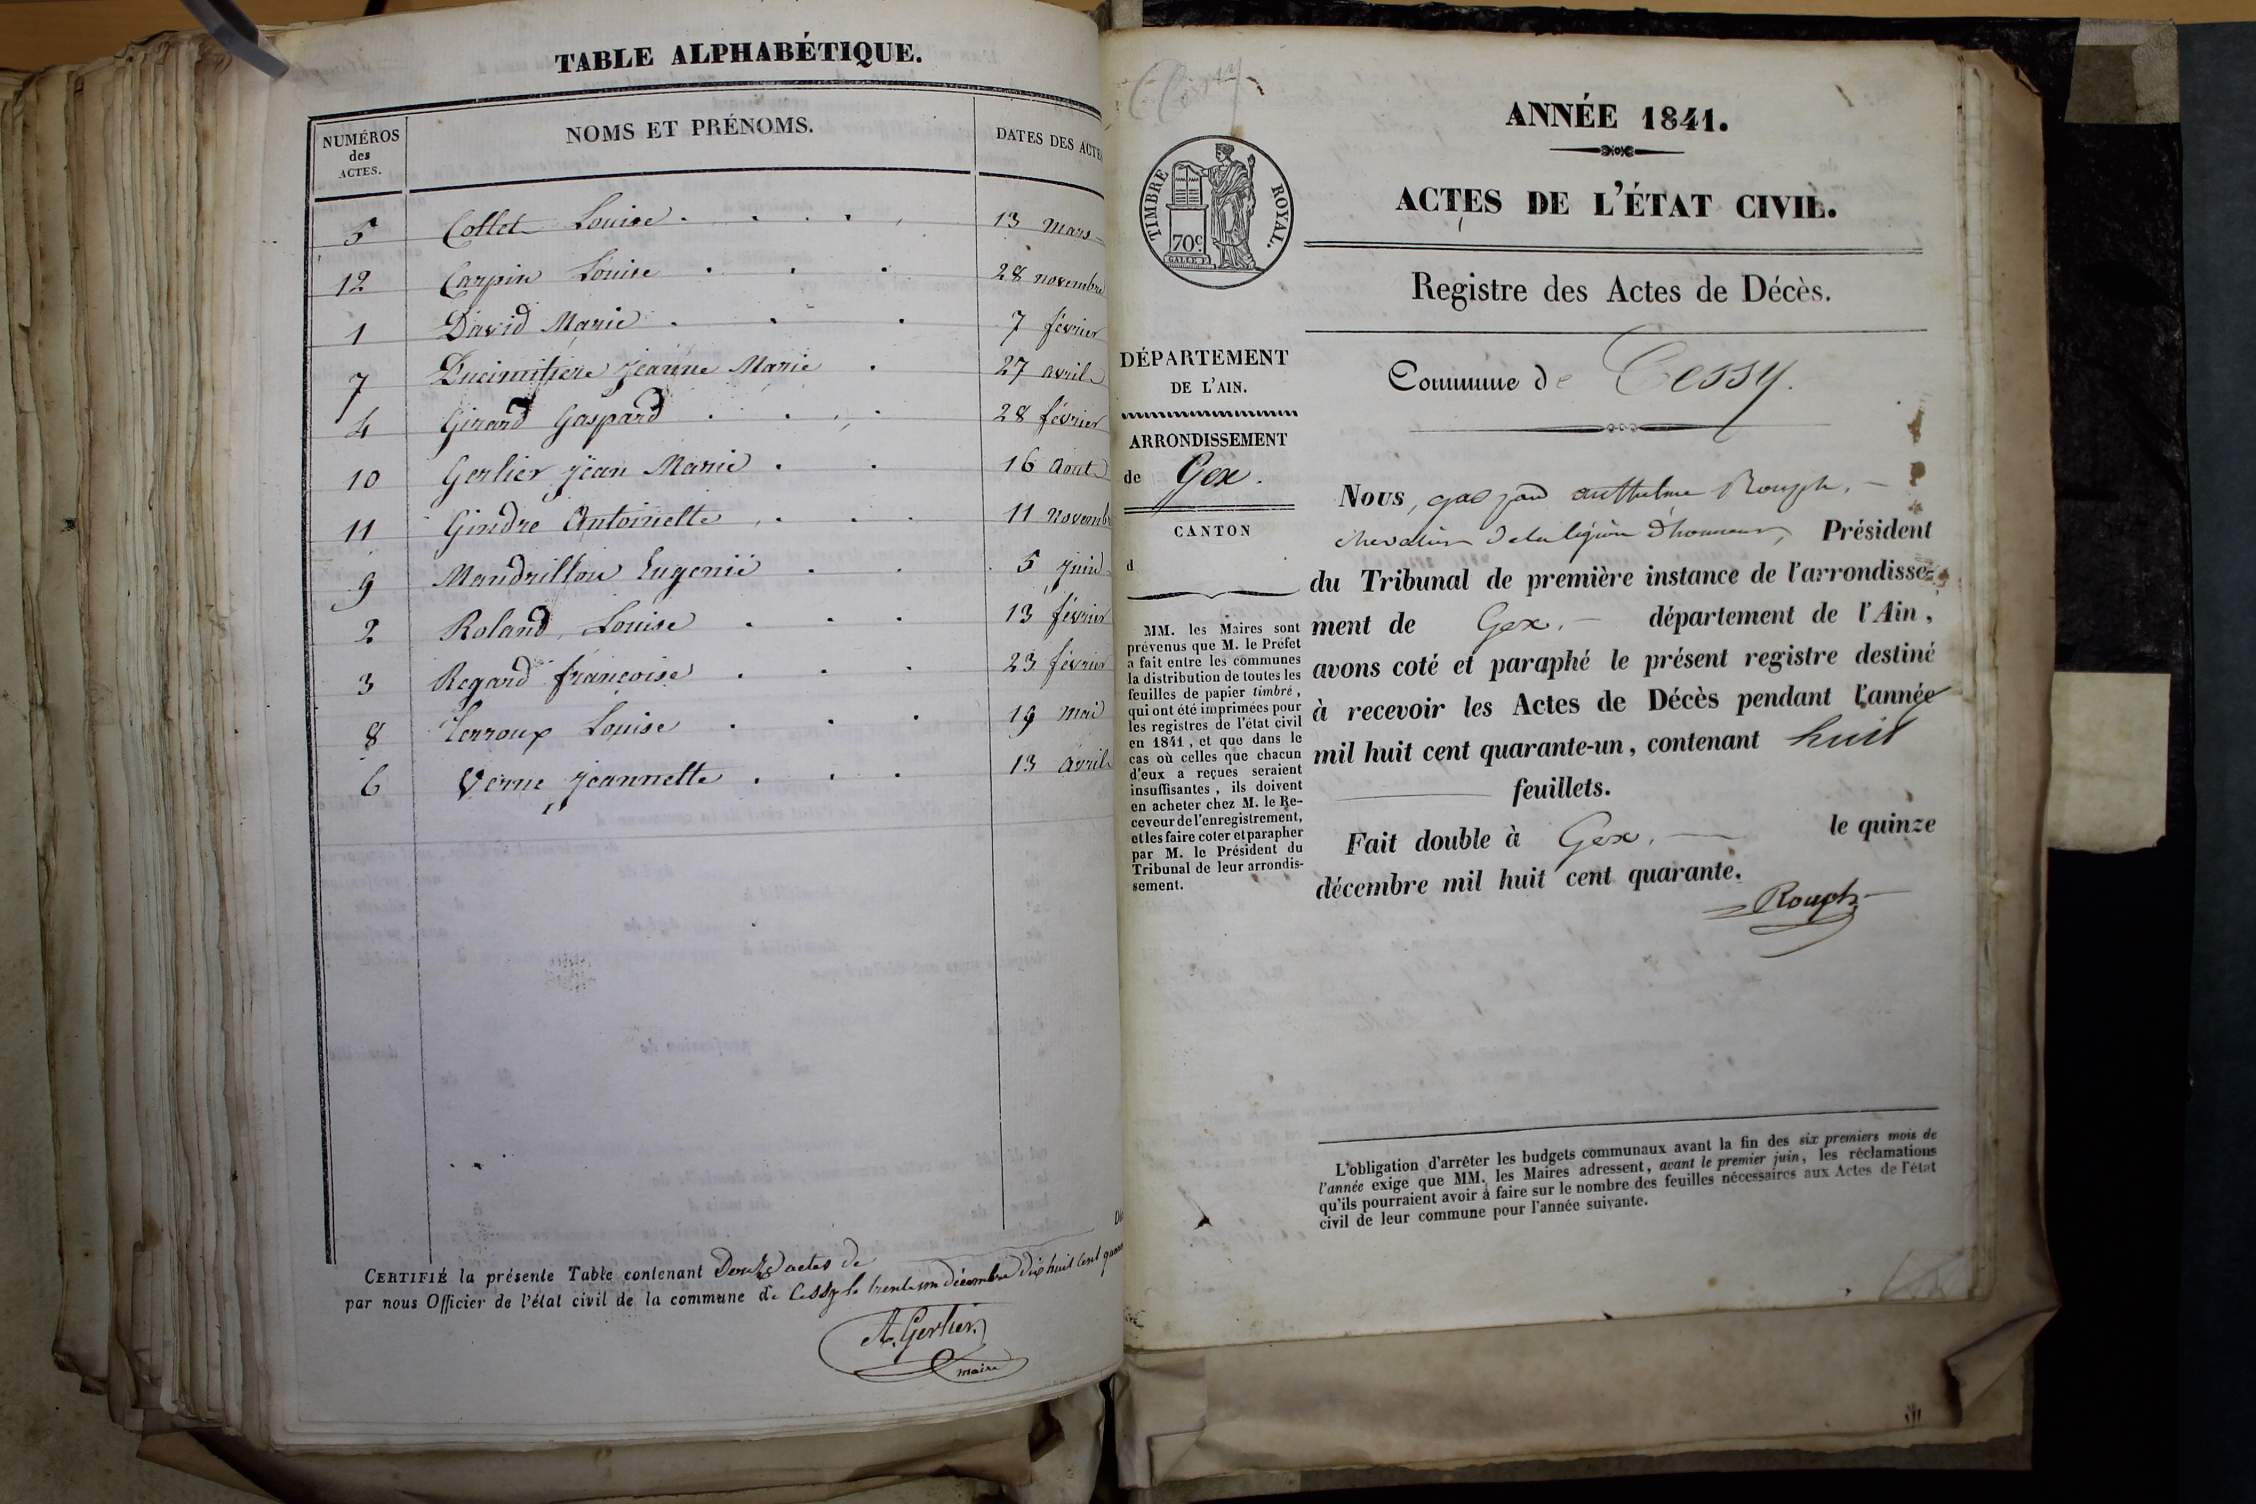 TABLE ALPHABÉTIQUE.
NUMÉROS des ACTES. NOMS ET PRÉNOMS. DATES DES ACTES
5 Collet Louise 13 mars
12 Carpin Louise 28 novembre
1 David Marie 7 février
7 Ducimitiere jeanne Marie 27 avril
4 Girard Gaspard 28 février
10 Gerlier jean Marie 16 Aout
11 Gindre Antoinette 11 novemb
9 Mandrillon Eugenie 5 juin
2 Roland Louise 13 février
3 Regard françoise 23 février
8 Terroux Louise 19 mai
6 Verne jeannette 13 Avril
CERTIFIÉ la présente Table contenant Douze actes de
par nous Officier de l'état civil de la commune de Cessy le trente un décembre dix huit cent quara
A. Gerlier
maire
Cessy
TIMBRE ROYAL.
70c
ANNÉE 1841.
ACTES DE L'ÉTAT CIVIL.
Registre des Actes de Décès.
DÉPARTEMENT
DE L'AIN.
ARRONDISSEMENT
de Gex.
CANTON
d
MM. les Maires sont
prévenus que M. le Préfet
a fait entre les communes
la distribution de toutes les
feuilles de papier timbré,
qui ont été imprimées pour
les registres de l'état civil
en 1841, et que dans le
cas où celles que chacun
d'eux a reçues seraient
insuffisantes, ils doivent
en acheter chez M. le Re-
ceveur de l'enregistrement,
et les faire coter et parapher
par M. le Président du
Tribunal de leur arrondis-
sement.
Commune de Cessy.
Nous, gaspard anthelme Rouph,
chevalier de la légion d'honneur, Président
du Tribunal de première instance de l'arrondisse-
ment de Gex. département de l'Ain,
avons coté et paraphé le présent registre destiné
à recevoir les Actes de Décès pendant l'année
mil huit cent quarante-un, contenant huit
feuillets.
Fait double à Gex. le quinze
décembre mil huit cent quarante.
Rouph
L'obligation d'arrêter les budgets communaux avant la fin des six premiers mois de
l'année exige que MM. les Maires adressent, avant le premier juin, les réclamations
qu'ils pourraient avoir à faire sur le nombre des feuilles nécessaires aux Actes de l'état
civil de leur commune pour l'année suivante.